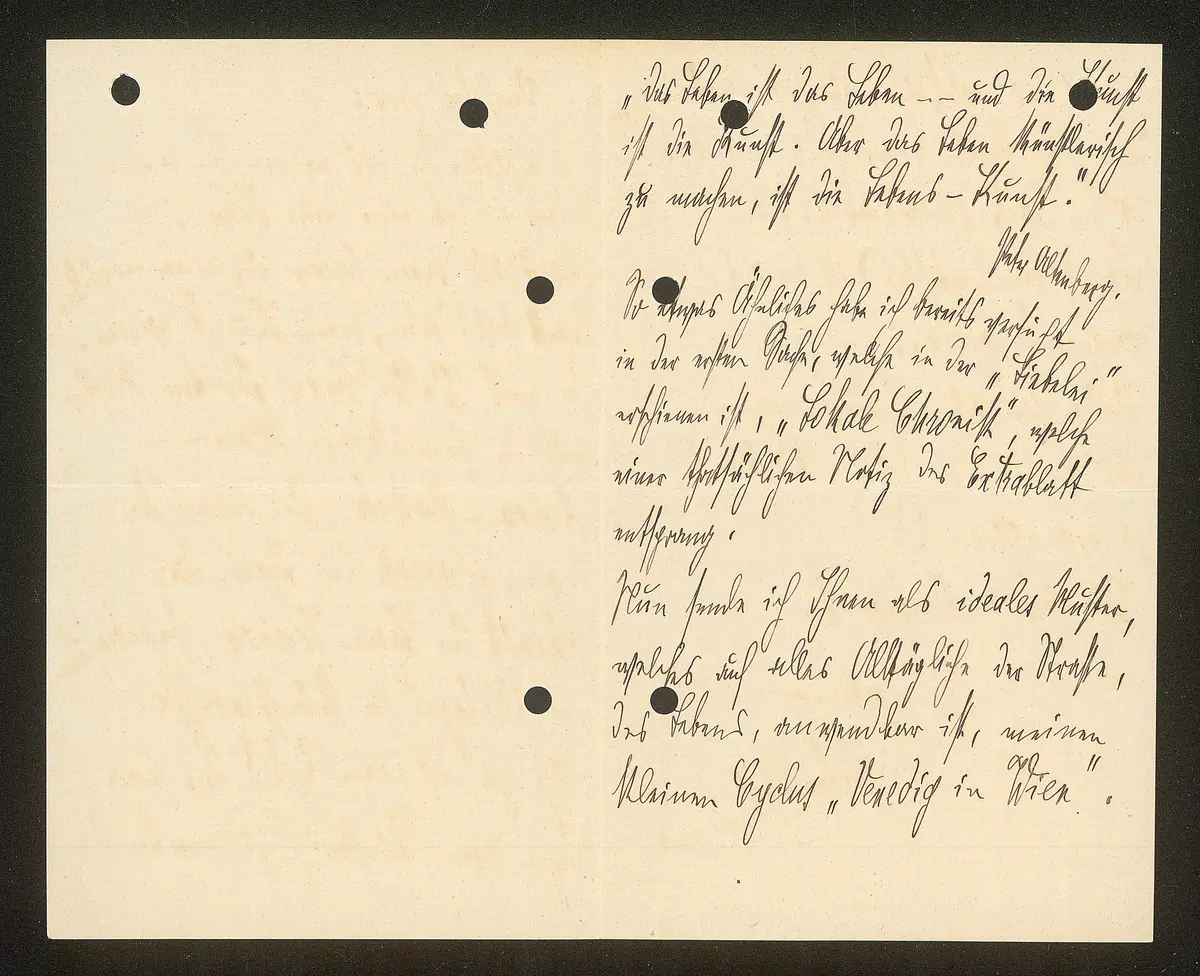 „das Leben ist das Leben -- und die Kunst
ist die Kunst. Aber das Leben künstlerisch
zu machen, ist die Lebens-Kunst."
Peter Altenberg.
So etwas Ähnliches habe ich bereits versucht
in der ersten Sache, welche in der „Liebelei"
erschienen ist, „Lokale Chronik", welche
einer thatsächlichen Notiz des Extrablatt
entsprang.
Nun sende ich Ihnen als ideales Muster,
welches auf alles Alltägliche der Strasse,
des Lebens, anwendbar ist, meinen
kleinen Cyclus „Venedig in Wien".